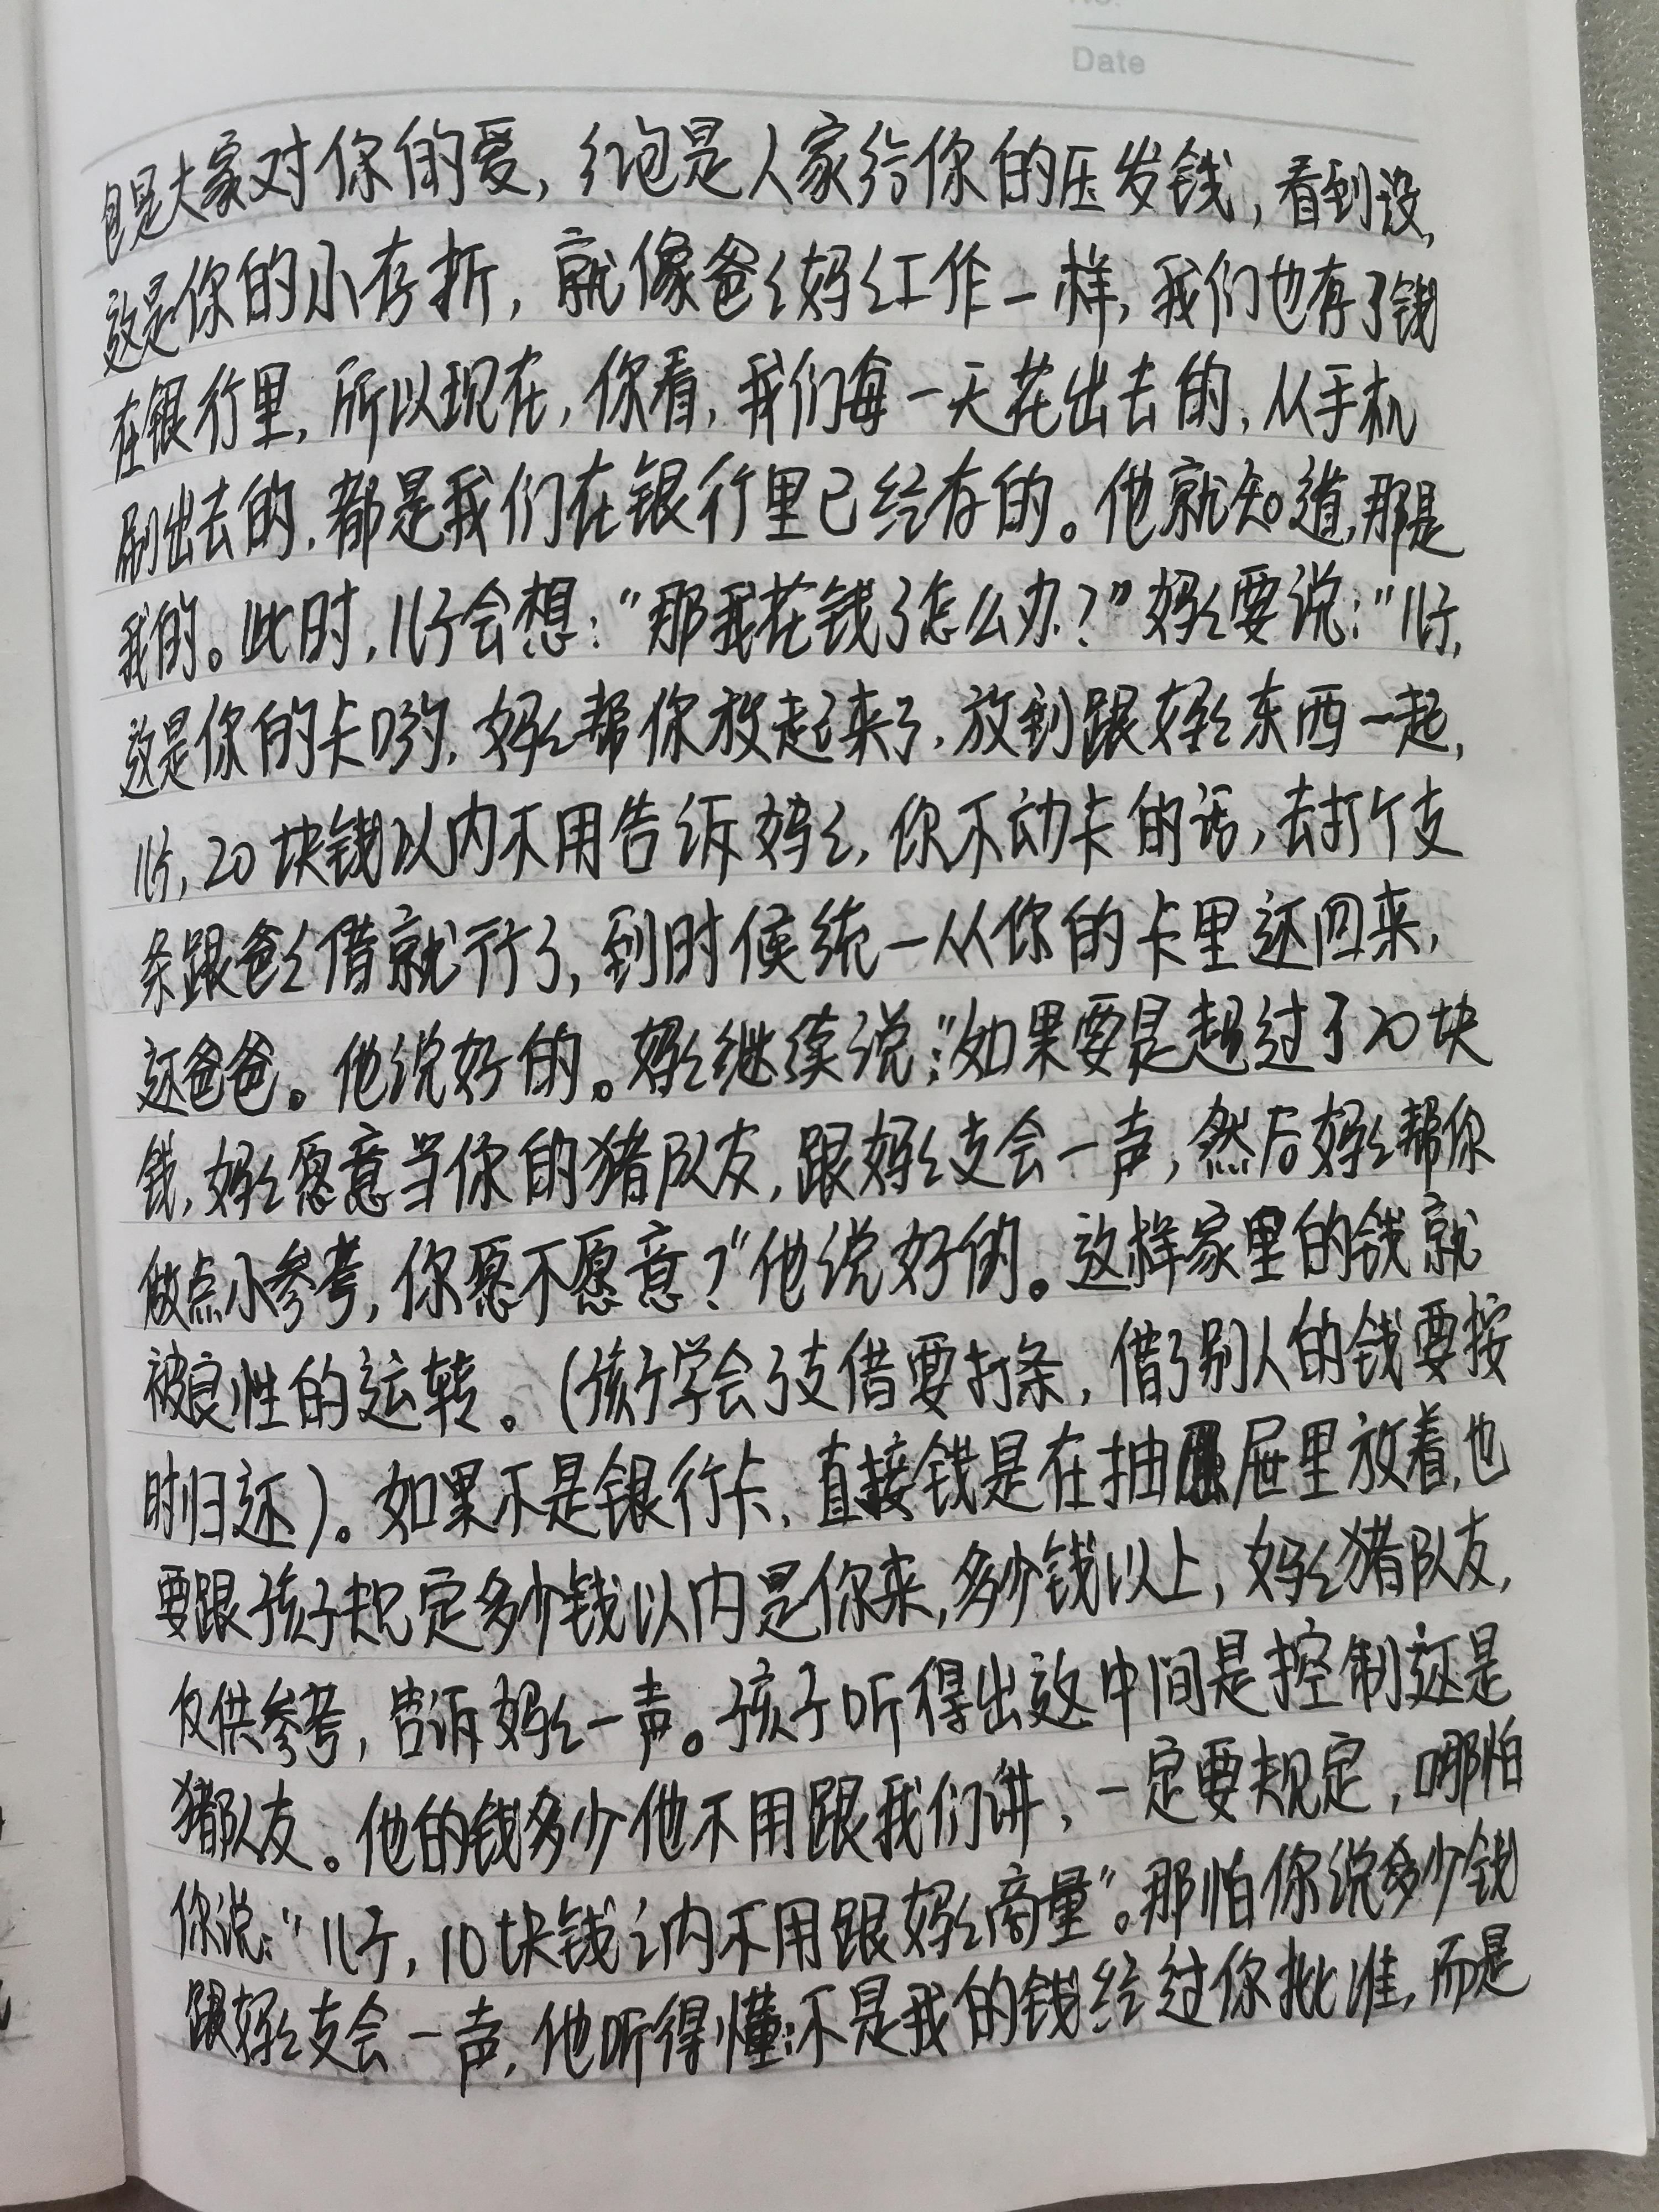 Date
包是大家对你的爱，红包是人家给你的压发钱，看到没，
这是你的小存折，就像爸々妈々工作一样，我们也存了钱
在银行里，所以现在，你看，我们每一天花出去的，从手机
刷出去的，都是我们在银行里已经存的。他就知道，那是
我的。此时，儿子会想：“那我花钱了怎么办？”妈々要说：“儿子，
这是你的卡哟，妈々帮你放起来了，放到跟妈々东西一起，
儿子，20块钱以内不用告诉妈々，你不动卡的话，去打个支
条跟爸々借就行了，到时候统一从你的卡里还回来，
还爸爸。他说好的。妈々继续说：“如果要是超过了20块
钱，妈々愿意当你的猪队友，跟妈々支会一声，然后妈々帮你
做点小参考，你愿不愿意？”他说好的。这样家里的钱就
被良性的运转。（孩子学会了支借要打条，借了别人的钱要按
时归还）。如果不是银行卡，直接钱是在抽屉里放着，也
要跟孩子规定多少钱以内是你来，多少钱以上，妈々猪队友，
仅供参考，告诉妈々一声。孩子听得出这中间是控制还是
猪队友。他的钱多少他不用跟我们讲，一定要规定，哪怕
你说：“儿子，10块钱之内不用跟妈々商量”。那怕你说多少钱
跟妈々支会一声，他听得懂：不是我的钱经过你批准，而是